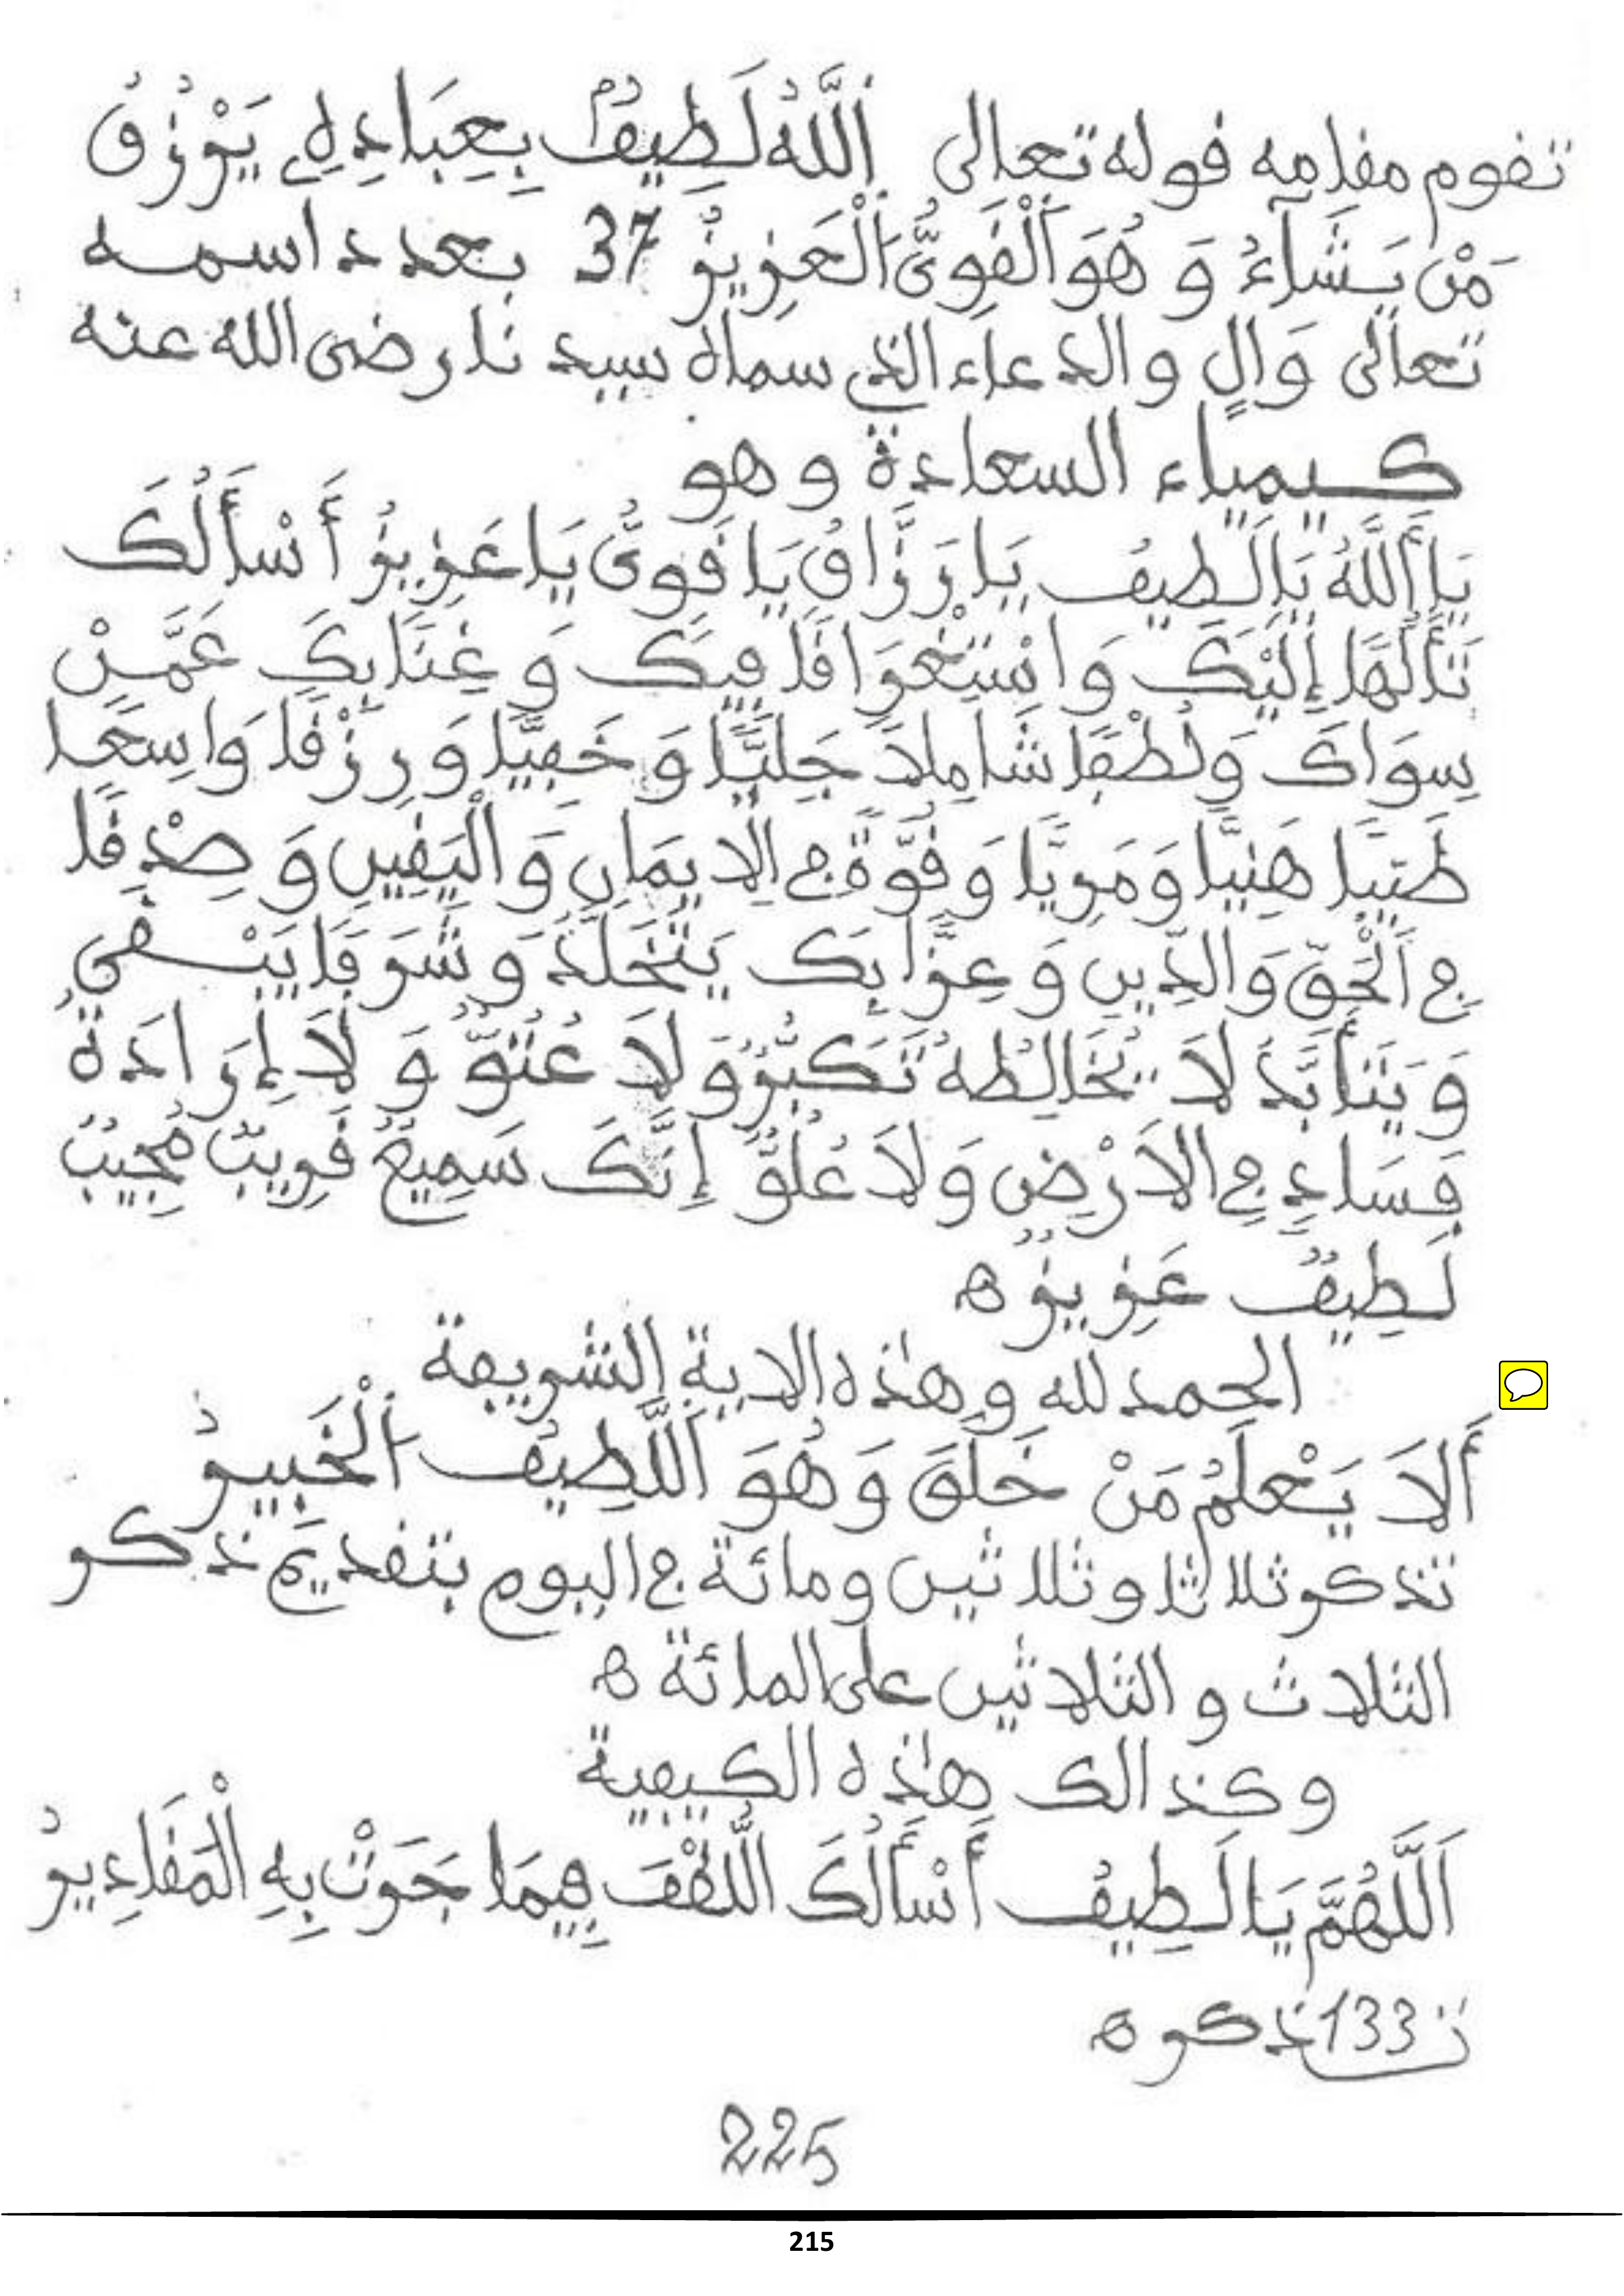 تقوم مقامه قوله تعالى اَللَّهُ لَطِيفٌ بِعِبَادِهِ يَرْزُقُ
مَنْ يَشَآءُ وَ هُوَ اَلْقَوِىُّ اَلْعَزِيزُ 37 بعدد اسمه
تعالى وَالٍ والدعاء الذي سماه سيدنا رضى الله عنه
كيمياء السعادة وهو
يَا أَللَّهُ يَا لَطِيفُ يَا رَزَّاقُ يَا قَوِىُّ يَا عَزِيزُ أَسْأَلُكَ
تَأَلُّهًا إِلَيْكَ وَاسْتِغْرَاقًا فِيكَ وَ غِنًا بِكَ عَمَّنْ
سِوَاكَ وَلُطْفًا شَامِلًا جَلِيًّا وَخَفِيًّا وَرِزْقًا وَاسِعًا
طَيِّبًا هَنِيًّا وَمَرِيًّا وَقُوَّةً فِي الِايمَانِ وَالْيَقِينِ وَصِدْقًا
فِي اَلْحَقِّ وَالدِّينِ وَعِزًّا بِكَ يَتَخَلَّدُ وَشَرَفًا يَبْقَى
وَيَتَأَبَّدُ لَا تُخَالِطُهُ تَكَبُّرٌ وَلَا عُتُوٌّ وَ لَا إِرَادَةُ
فَسَادٍ فِي الَارْضِ وَلَا عُلُوٍّ إِنَّكَ سَمِيعٌ قَرِيبٌ مُجِيبٌ
لَطِيفٌ عَزِيزٌ ه
الحمد لله وهذه الاية الشريفة
أَلَا يَعْلَمُ مَنْ خَلَقَ وَهُوَ اَللَّطِيفُ اَلْخَبِيرُ
تذكر ثلاثا وثلاثين ومائة في اليوم بتقديم ذكر
الثلاث و الثلاثين على المائة ه
وكذالك هذه الكيفية
اَللَّهُمَّ يَا لَطِيفُ أَسْأَلُكَ اللُّطْفَ فِيمَا جَرَتْ بِهِ الْمَقَادِيرُ
133 ذكر ه
225
215